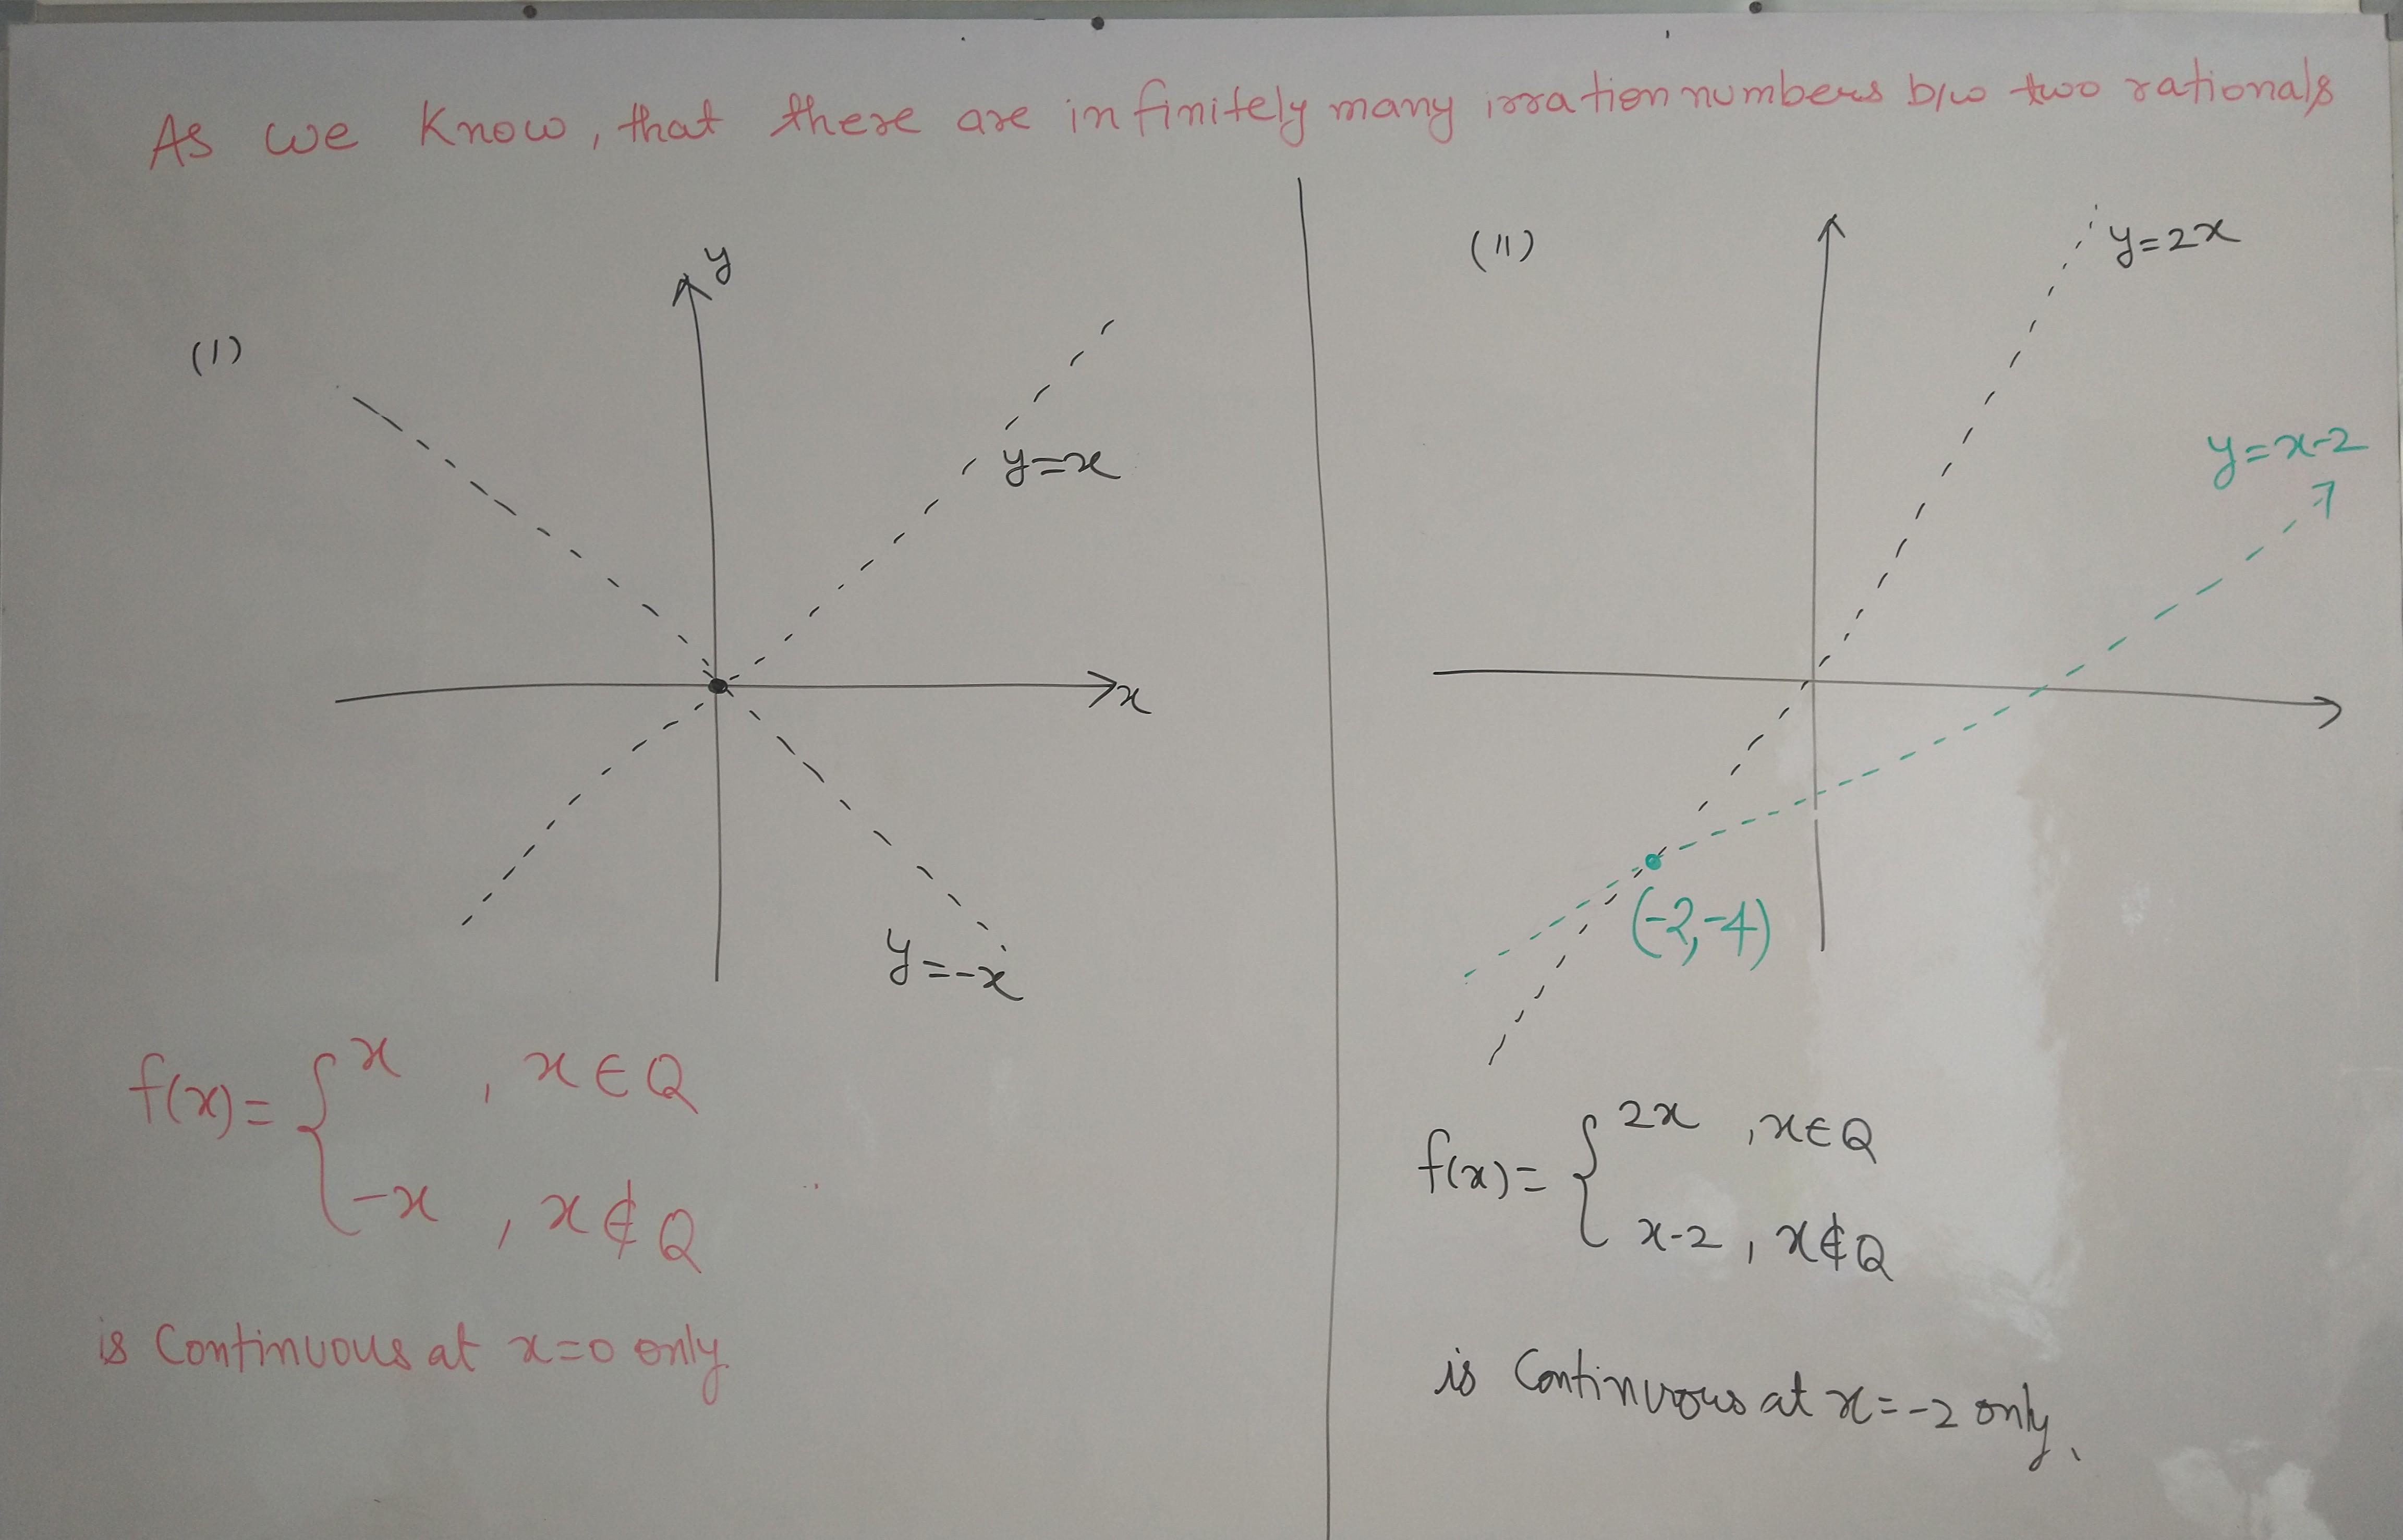 As we know, that there are infinitely many irration numbers b/w two rationals
(I)
y
y=x
x
y=-x
f(x)= { x , x∈Q
-x , x∉Q
is Continuous at x=0 only
(II)
y=2x
y=x-2
(-2,-4)
f(x)= { 2x , x∈Q
x-2 , x∉Q
is Continuous at x=-2 only.